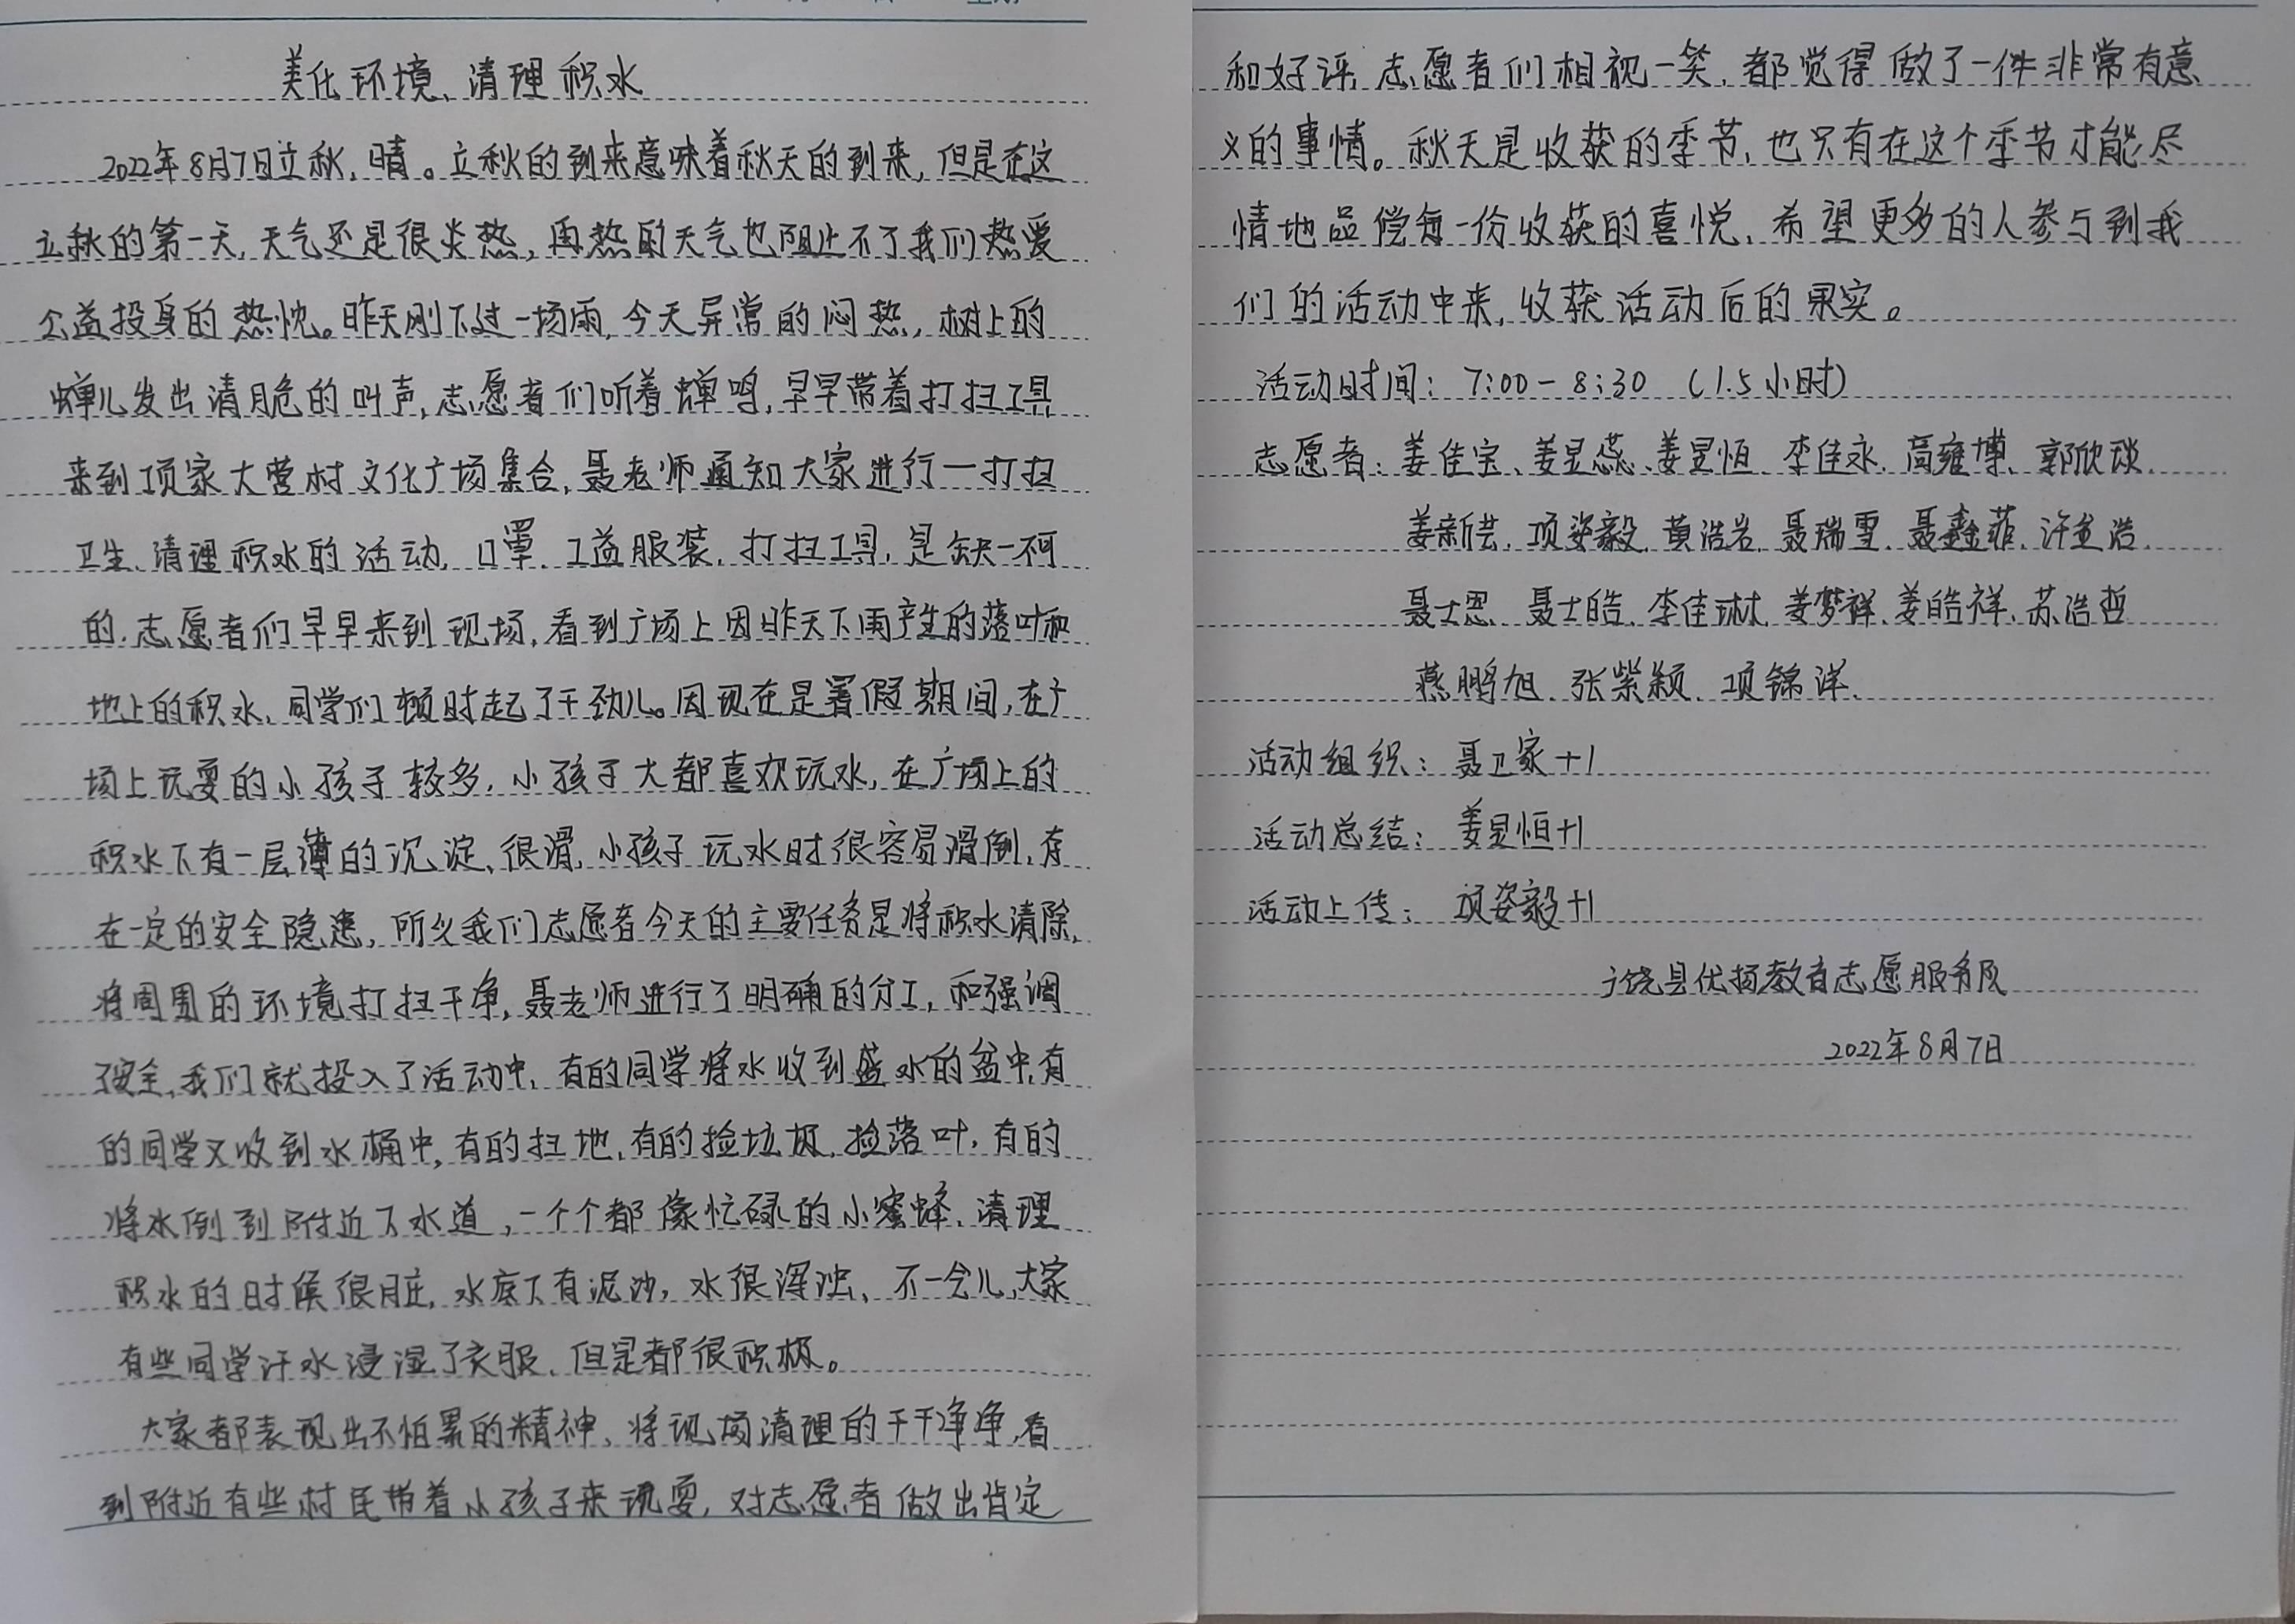 美化环境、清理积水
2022年8月7日立秋,晴。立秋的到来意味着秋天的到来,但是在这
立秋的第一天,天气还是很炎热,再热的天气也阻止不了我们热爱
公益投身的热忱。昨天刚下过一场雨,今天异常的闷热,树上的
蝉儿发出清脆的叫声,志愿者们听着蝉鸣,早早带着打扫工具
来到项家大营村文化广场集合,聂老师通知大家进行一打扫
卫生、清理积水的活动,口罩、工益服装,打扫工具,是缺一不可
的.志愿者们早早来到现场,看到广场上因昨天下雨产生的落叶和
地上的积水,同学们顿时起了干劲儿。因现在是暑假期间,在广
场上玩耍的小孩子较多,小孩子大都喜欢玩水,在广场上的
积水下有一层薄的沉淀、很滑,小孩子玩水时很容易滑倒,存
在一定的安全隐患,所以我们志愿者今天的主要任务是将积水清除,
将周围的环境打扫干净,聂老师进行了明确的分工,和强调
安全,我们就投入了活动中,有的同学将水收到盛水的盆中,有
的同学又收到水桶中,有的扫地,有的捡垃圾,捡落叶,有的
将水倒到附近下水道,一个个都像忙碌的小蜜蜂、清理
积水的时候很脏,水底下有泥沙,水很浑浊、不一会儿,大家
有些同学汗水浸湿了衣服、但是都很积极。
大家都表现出不怕累的精神、将现场清理的干干净净,看
到附近有些村民带着小孩子来玩耍,对志愿者做出肯定
和好评,志愿者们相视一笑,都觉得做了一件非常有意
义的事情。秋天是收获的季节,也只有在这个季节才能尽
情地品偿每一份收获的喜悦,希望更多的人参与到我
们的活动中来,收获活动后的果实。
活动时间: 7:00-8:30 (1.5小时)
志愿者: 姜佳宝、姜昱蕊、姜昱恒、李佳永、高雍博、郭欣琰、
姜新芸、项姿毅、黄浩岩、聂瑞雪、聂鑫菲、许浩、
聂士恩、聂士皓、李佳琳、姜梦祥、姜皓祥、苏浩哲
燕鹏旭、张紫颖、项锦洋、
活动组织: 聂卫家+1
活动总结: 姜昱恒+1
活动上传: 项姿毅+1
广饶县优扬教育志愿服务队
2022年8月7日